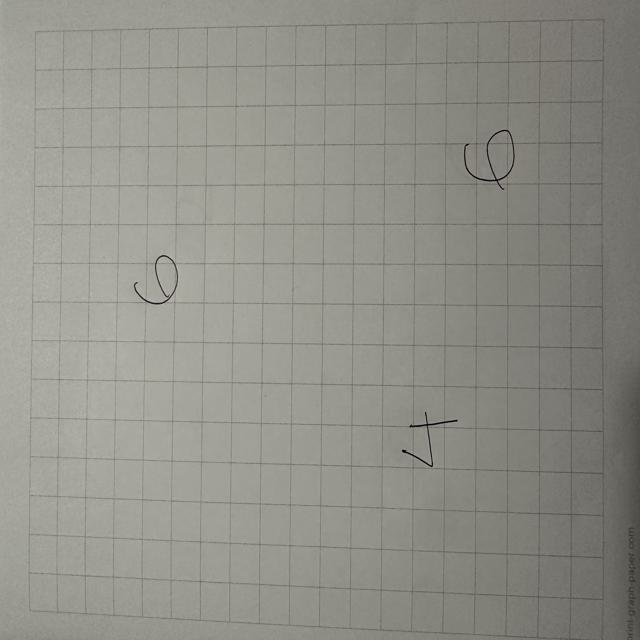 6
4
6
print-graph-paper.com